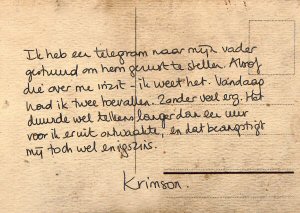 Ik heb een telegram naar mijn vader
gestuurd om hem gerust te stellen. Alsof
die over me inzit - ik weet het. Vandaag
had ik twee toevallen. Zonder veel erg. Het
duurde wel telkens langer dan een uur
voor ik eruit ontwaakte, en dat beangstigt
mij toch wel enigszins.
Krimson.